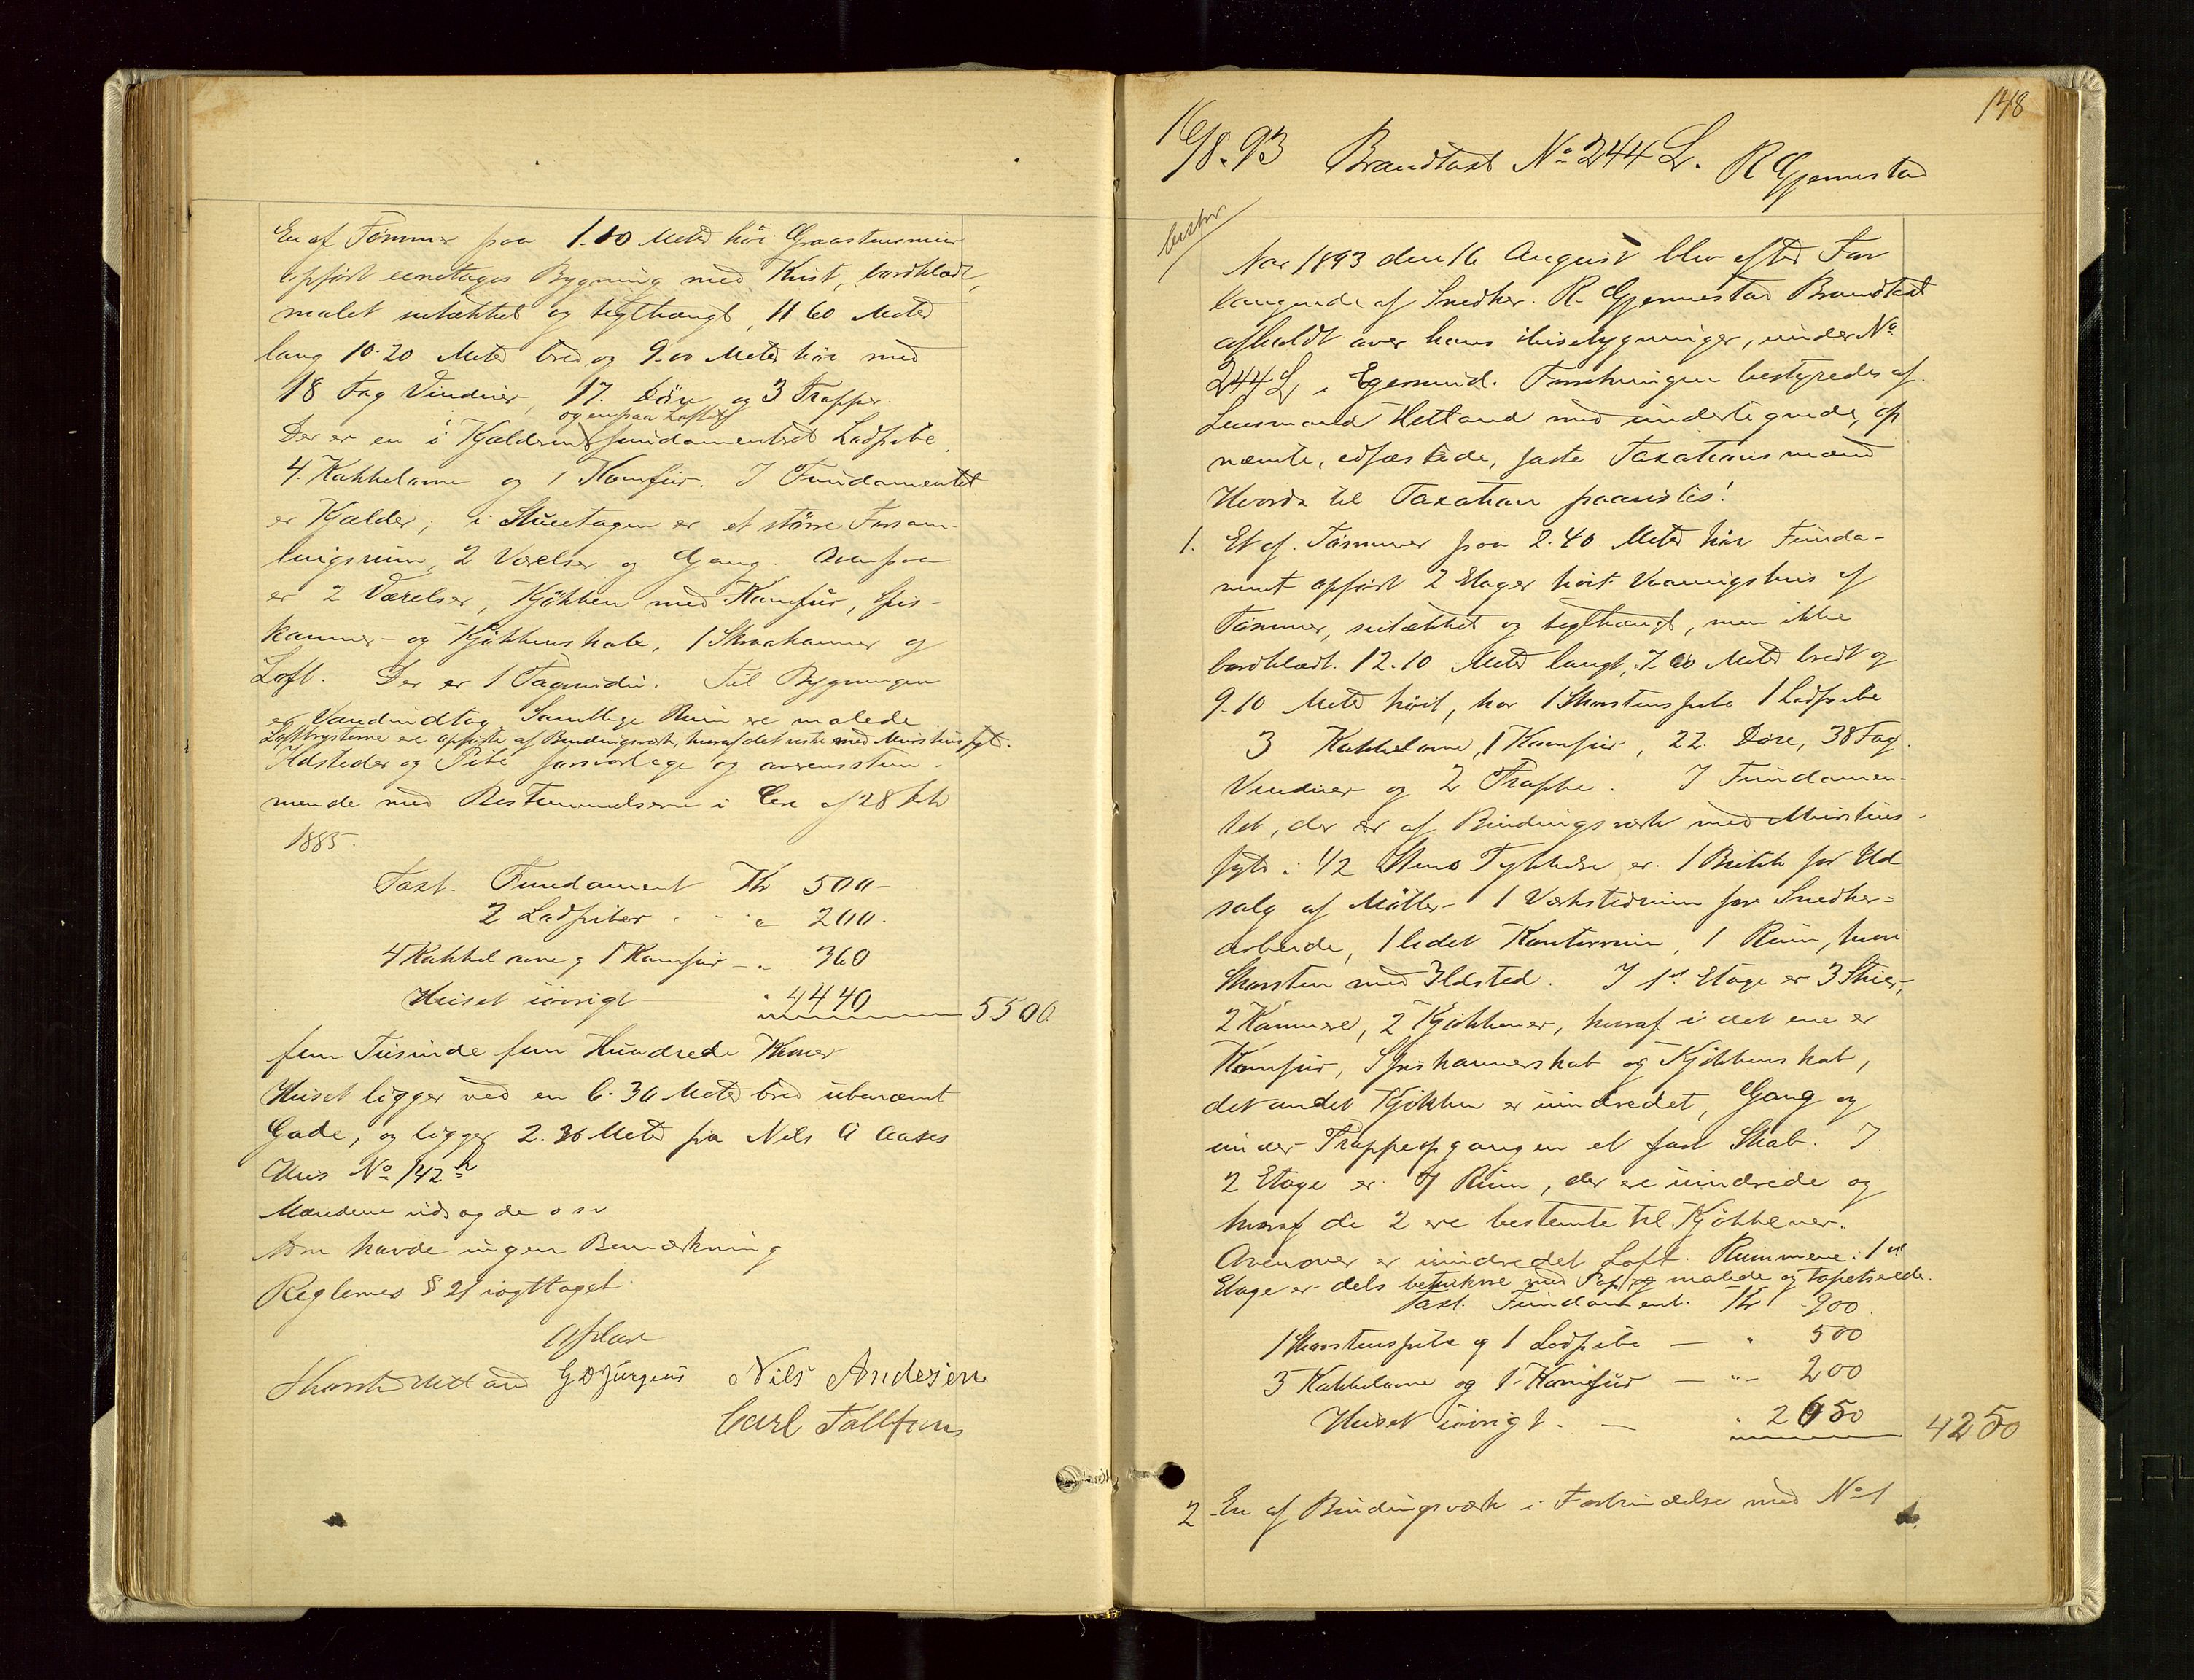 En af Tømmer paa 1.10 Meter høi Graastensmuur
opført eenetages Bygning med Kvist, bordklædt,
malet sutækket og teglhængt, 11.60 Meter
lang 10.20 Meter bred og 9.00 Meter høi med
18 Fag Vinduer, 17. Døre og 3 Trapper.
og en paa Loftet
Der er en i Kjælderen fundamenteret Ladpibe,
4. Kakkelovne og 1 Komfur. I Fundamentet
er Kjælder; i Stueetagen er et større Forsam-
lingsrum, 2 Værelser og Gang. Ovenpaa
er 2 Værelser, Kjøkken med Komfur, Spis-
kammer- og Kjøkkenskabe, 1 Skraakammer og
Loft. Der er 1 Tagvindu. Til Bygningen
er Vandindtag. Samtlige Rum ere malede.
Loftbrysterne ere opførte af Bindingsværk, hvoraf det veste med Murstensfyld.
Ildsteder og Pibe forsvarlige og overensstem-
mende med Bestemmelserne i Lov af 28 Feb
1885.
Taxt. Fundament Kr 500-
2 Ladpiber - - " 200.
4 Kakkelovne og 1 Komfur - " 360
Huset iøvrigt " 4440 5500
fem Tusinde fem Hundrede Kroner
Huset ligger ved en 6.30 Meter bred ubenævnt
Gade, og ligger 2.30 Meter fra Nils A Aases
Hus No 142 h
Mændene udsagde o s v
som havde ingen Bemærkning
Reglernes § 21 iagttaget.
Opløst
Hetland G D Jürgens Nils Andesen
Carl Tollefsen
148
16/8.93 Brandtaxt No 244 L. R Gjermestad
Aar 1893 den 16 August blev efter For
langende af Snedker R. Gjermestad Brandtaxt
afholdt over hans Husebygninger, under No
244 L i Egersund. Forretningen bestyredes af
Lensmand Hetland med undertegnede, op
nævnte, edfæstede, faste Taxationsmænd
Hvorda til Taxation paavistes!
1. Et af Tømmer paa 2.40 Meter høi Funda-
ment opført 2 Etager høit Vaaningshus af
Tømmer, sutækket og teglhængt, men ikke
bordklædt. 12.10 Meter langt, 7.00 Meter bredt og
9.10 Meter høit, har 1 Skorstenspibe 1 Ladpibe
3 Kakkelovne, 1 Komfur, 22. Døre, 38 Fag
Vinduer og 2 Trappe. I Fundamen-
tet, der er af Bindingsværk med Murstens-
fyld i 1/2 Stens Tykkelse er 1 Butik for Ud
salg af Møbler- 1 Værkstedrum for Snedker-
arbeide, 1 lidet Kontorrum, 1 Rum, hvori
Skorsten med Ildsted. I 1ste Etage er 3 Stuer,
2 Kammere, 2 Kjøkkener, hvoraf i det ene er
Komfur, Spiskammerskab og Kjøkkenskab,
det andet Kjøkken er uindredet, Gang og
under Trappeopgangen et fast Skab. I
2 Etage er 7 Rum, der ere uindrede og
hvoraf de 2 ere bestemte til Kjøkkener.
Ovenover er uindredet Loft. Rummene i 1ste
Etage er dels betrukne med Pap og malede og tapetserede.
Taxt. Fundament. Kr 900.
1 Skorstenspibe og 1 Ladpibe — " 500
3 Kakkelovne og 1 Komfur — " - 200
Huset iøvrigt. — " 2650 4250
2 En af Bindingsværk i Forbindelse med No 1